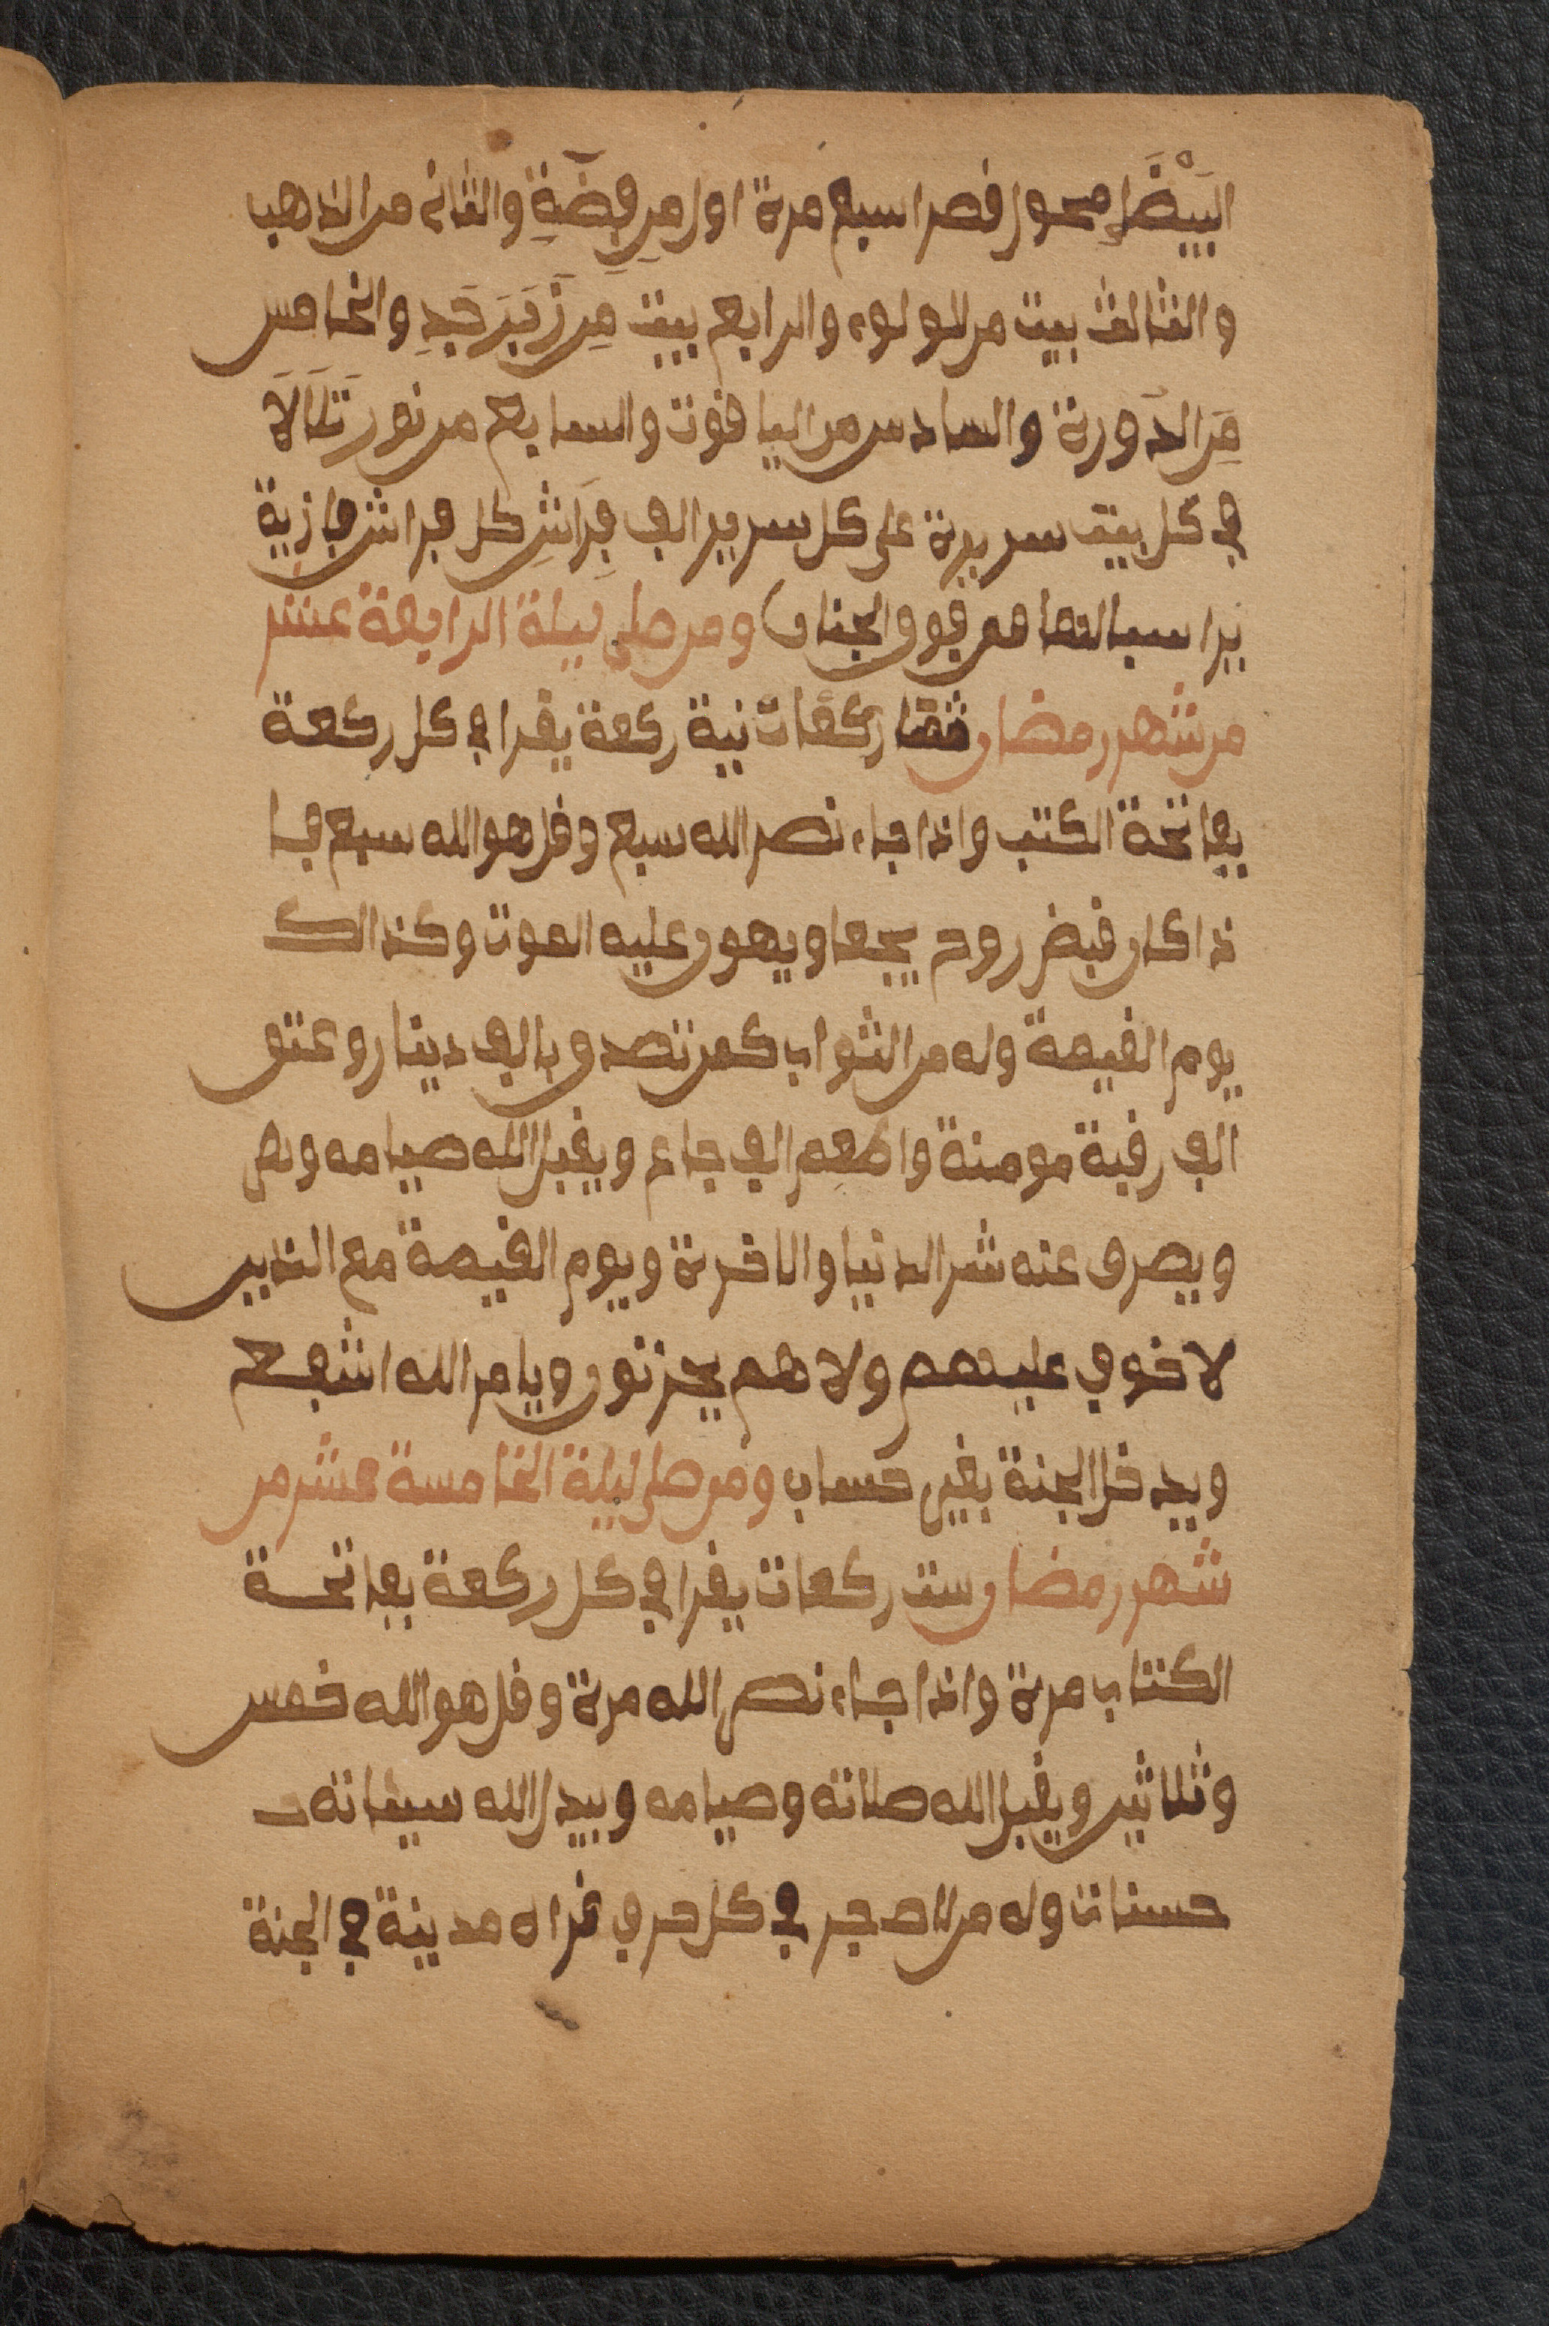 البَيْضَاءِ محوا قصرا سبع مرة اول مِن فِضَّةِ والثاني من الذهب
والثالث بيت من اللولوء والرابع بيت مِن زَبَرجَدِ والخامس
مِن الدَورة والسادس من الياقوت والسابع من نور تَلَالَا
في كل بيت سريرة على كل سرير الف فِرَاشِ كل فراش جازية
نراسبا لتما من فوق الجنان ومن صلى ليلة الرابعة عشر
من شهر رمضان ركعات نية ركعة يقرا في كل ركعة
بفاتحة الكتب واذا جاء نصر الله سبع وقل هو الله سبع فا
ذا كان قبض روح يجعا ويهون عليه الموت وكذالك
يوم القيمة وله من الثواب كمن تصدق بالف دينار وعتق
الف رقبة مومنة واطعم الف جاع ويقبل الله صيامه وبص
ويصرف عنه شر الدنيا والاخرة ويوم القيمة مع الذين
لا خوف عليهم ولا هم يحزنون ويامر الله اشفع
ويدخل الجنة بغير حساب ومن صلى ليلة الخامسة عشر من
شهر رمضان ست ركعات يقرا في كل ركعة بفاتحة
الكتاب مرة واذا جاء نصر الله مرة وقل هو الله خمس
وثلاثين ويقبل الله صلاته وصيامه ويبدل الله سيعاته
حسنات وله من الاصجر في كل حرف قراه مدينة في الجنة